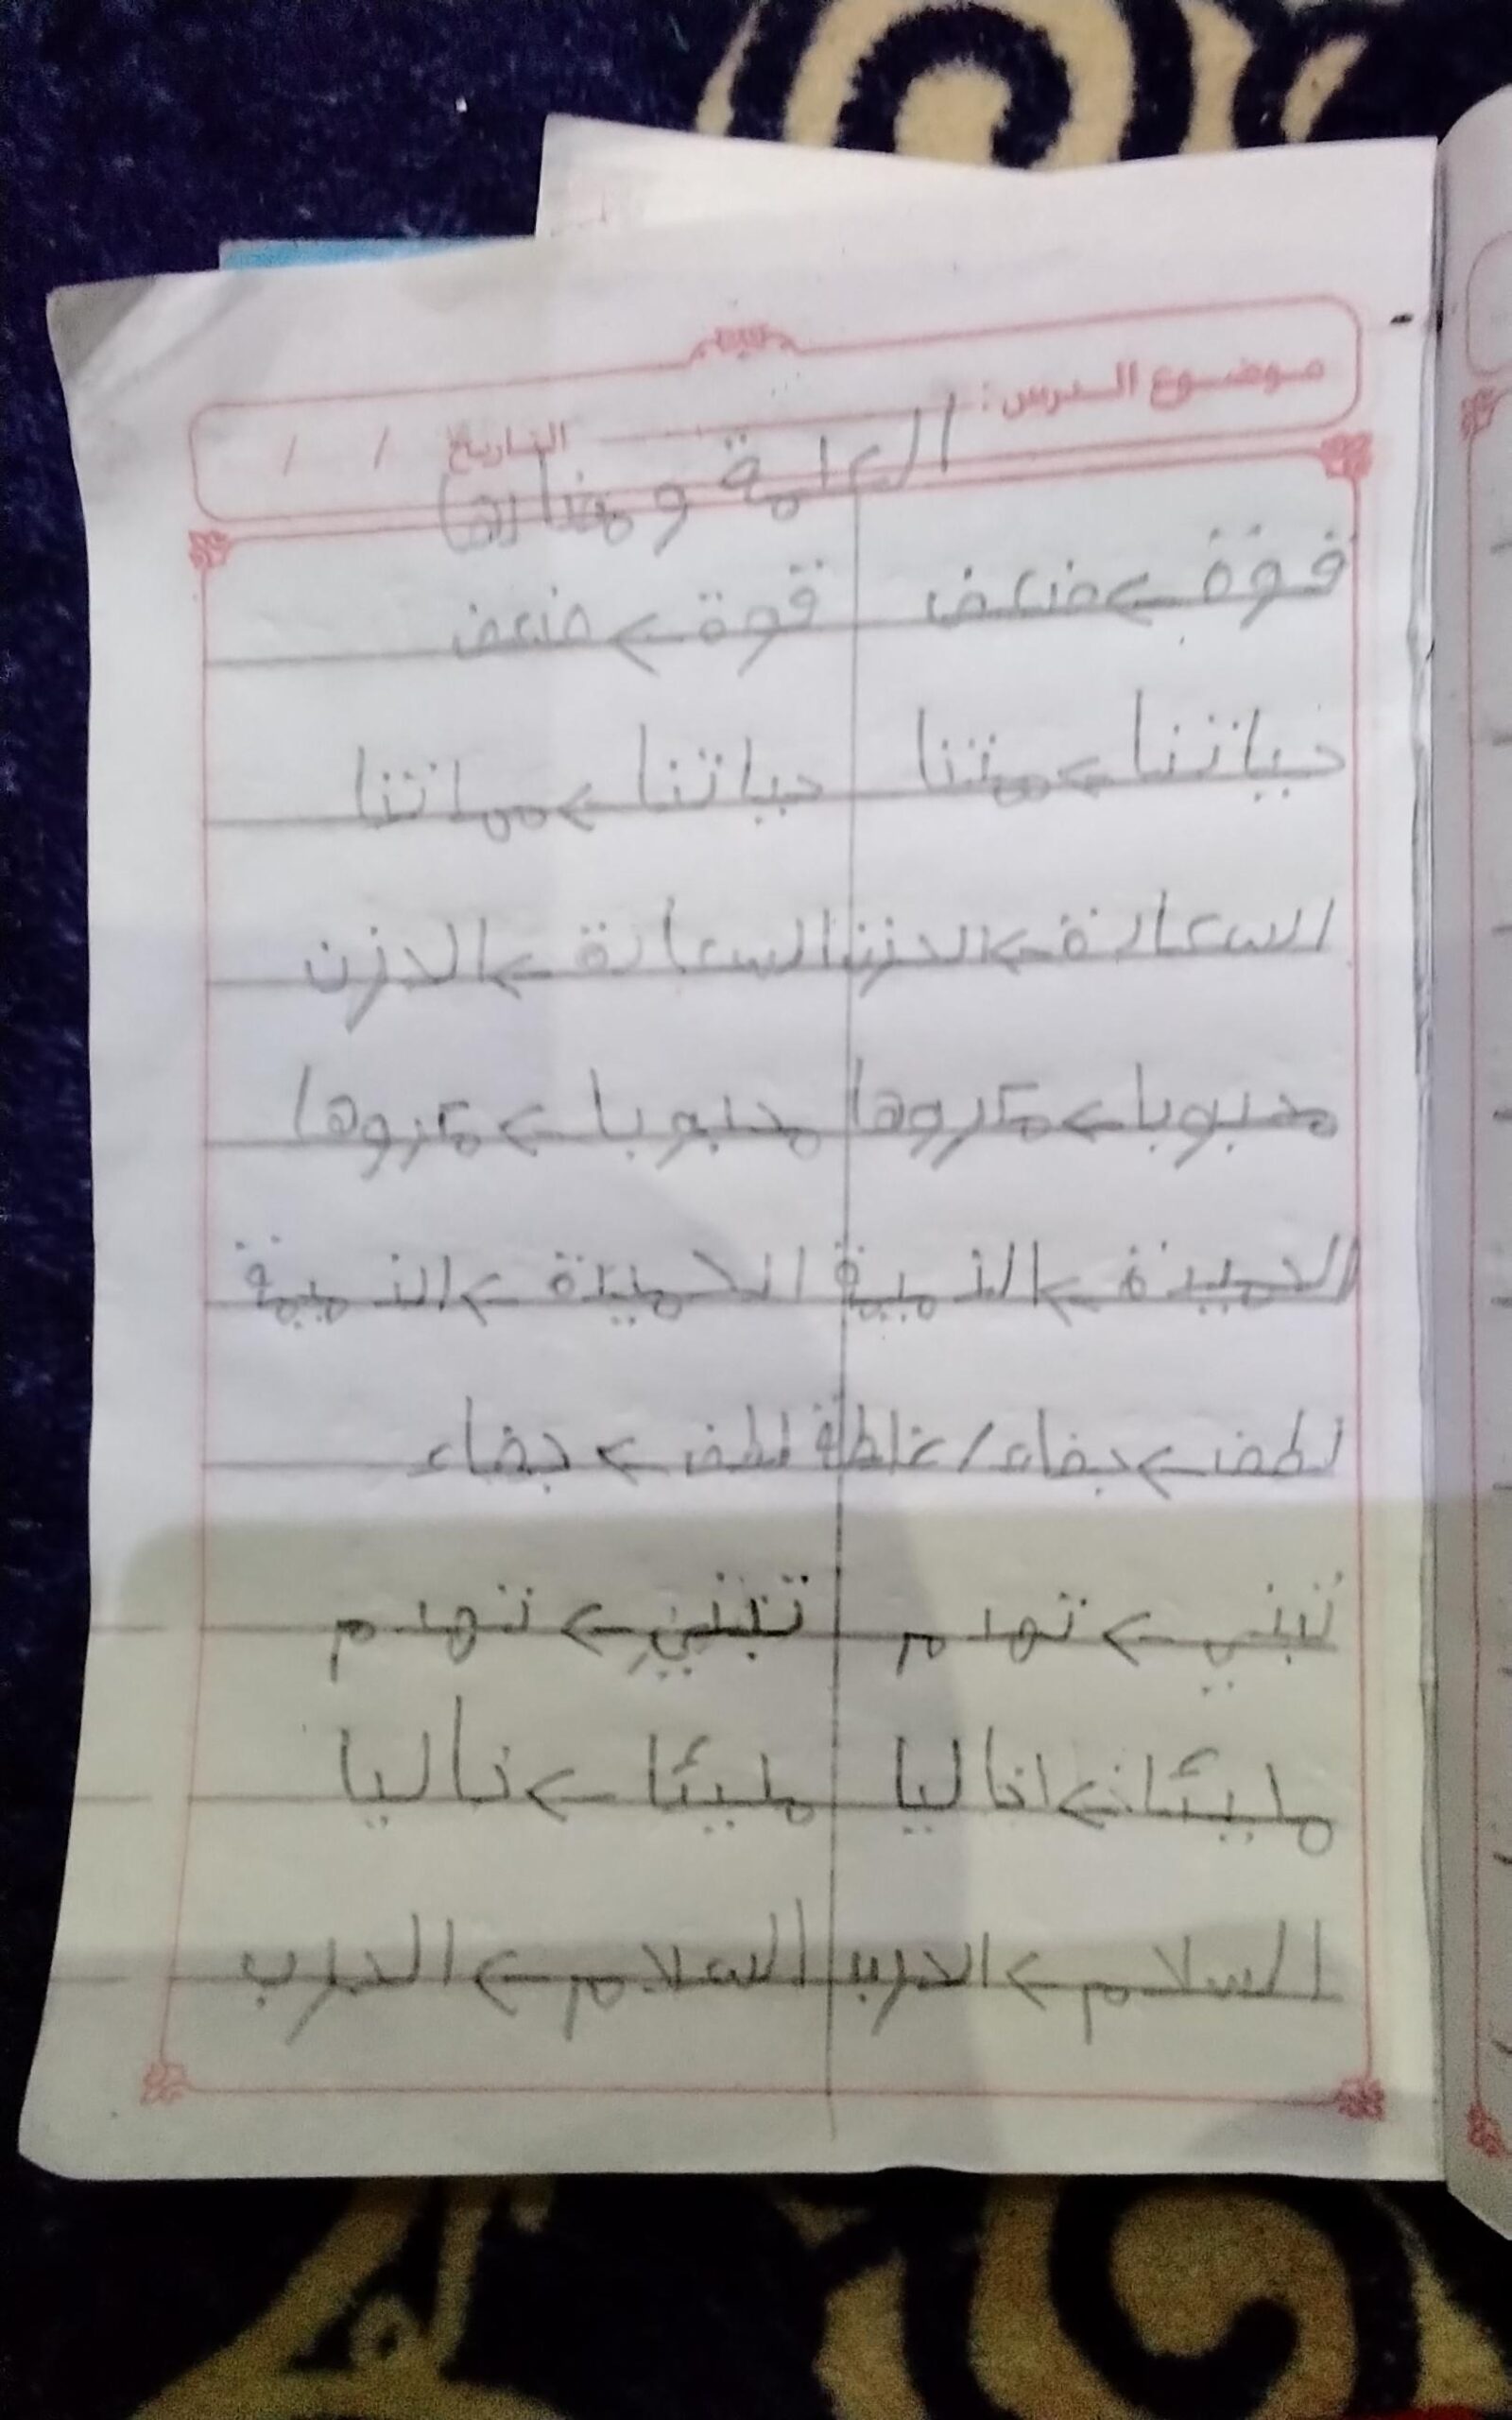 موضوع الدرس: التاريخ / /
الكلمة و مضادها
قوة > ضعف قوة > ضعف
حياتنا > موتنا حياتنا > مماتنا
السعادة > الحزن السعادة > الحزن
محبوبا > مكروها محبوبا > مكروها
الحميدة > الذميمة الحميدة > الذميمة
لطف > جفاء / غلظة لطف > جفاء
تبني > تهدم تبني > تهدم
مليئا > خاليا مليئا > خاليا
السلام > الحرب السلام > الحرب